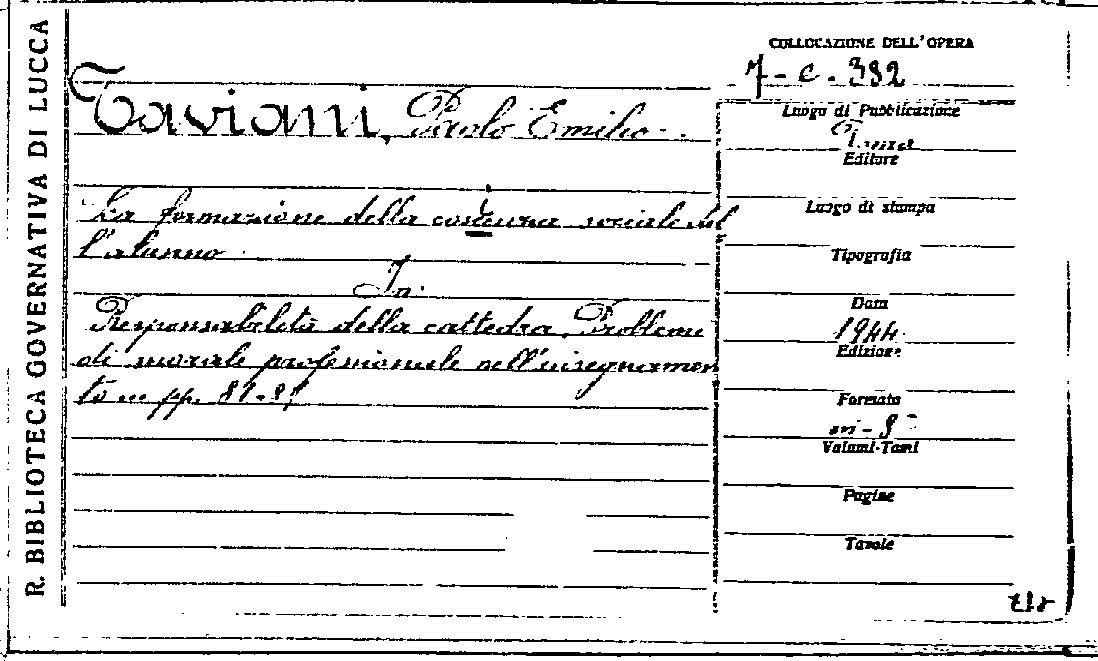 R. BIBLIOTECA GOVERNATIVA DI LUCCA
Taviani, Paolo Emilio
La formazione della coscienza sociale del
l'alunno
In:
Responsabilità della cattedra. Problemi
di morale professionale nell'insegnamen
to pp. 81-
COLLOCAZIONE DELL'OPERA
7-C-392
Luogo di Pubblicazione
Editore
Luogo di stampa
Tipografia
Data
1944
Edizione
Formato
in-8°
Volumi-Tomi
Pagine
Tavole